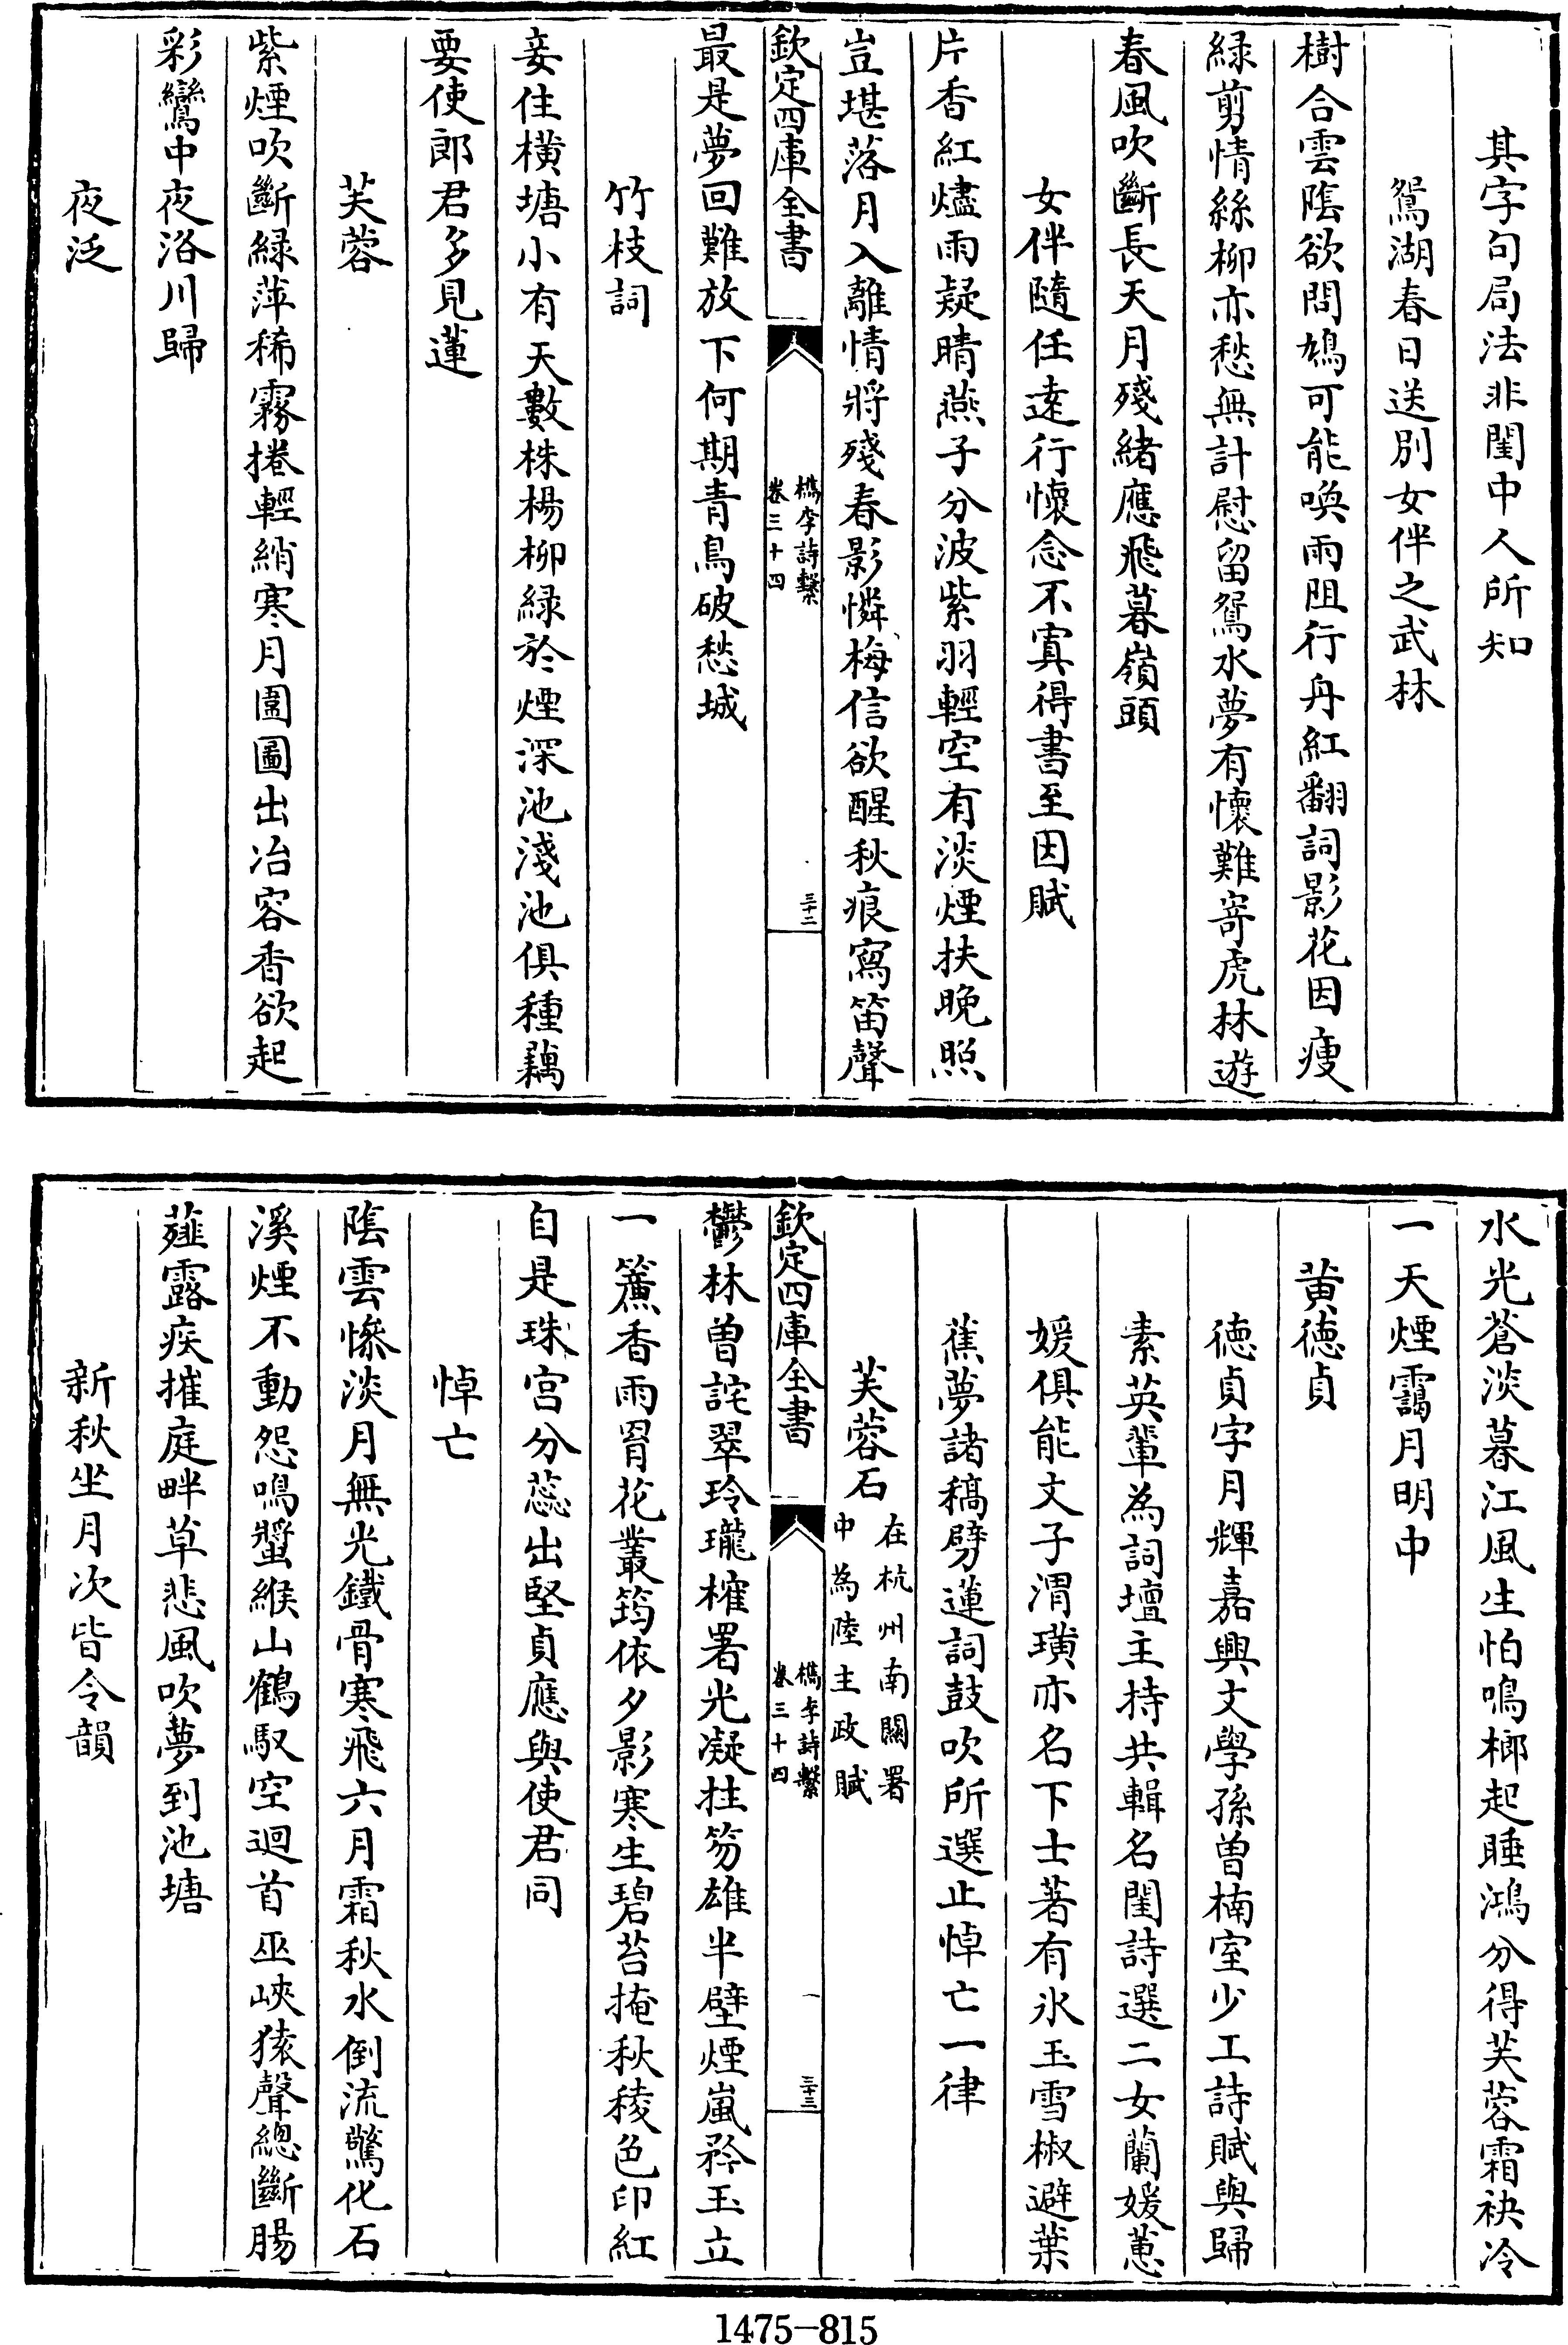 其字句局法非閨中人所知
鴛湖春日送別女伴之武林
樹合雲隂欲問鳩可能喚雨阻行舟紅翻詞影花因瘦
緑剪情絲柳亦愁無計慰留鴛水夢有懷難寄虎林遊
春風吹斷長天月殘緒應飛暮嶺頭
女伴隨任逺行懷念不寘得書至因賦
片香紅燼雨疑晴燕子分波紫羽輕空有淡煙扶晩照
豈堪落月入離情將殘春影憐梅信欲醒秋痕寫笛聲
欽定四庫全書
檇李詩繫
卷三十四
三十二
最是夢回難放下何期青鳥破愁城
竹枝詞
妾住橫塘小有天數株楊柳緑於煙深池淺池俱種藕
要使郎君多見蓮
芙蓉
紫煙吹斷緑萍稀霧捲輕綃寒月圍圖出冶容香欲起
彩鸞中夜洛川歸
夜泛
水光蒼淡暮江風生怕鳴榔起睡鴻分得芙蓉霜袂冷
一天煙靄月明中
黄徳貞
徳貞字月輝嘉興文學孫曽楠室少工詩賦與歸
素英輩為詞壇主持共輯名閨詩選二女蘭媛蕙
媛俱能文子渭璜亦名下士著有氷玉雪椒避葉
蕉夢諸稿劈蓮詞鼓吹所選止悼亡一律
芙蓉石
在杭州南關署
中為陸主政賦
欽定四庫全書
檇李詩繫
卷三十四
三十三
鬱林曽詫翠玲瓏榷署光凝拄笏雄半壁煙嵐矜玉立
一簾香雨罥花叢筠依夕影寒生碧苔掩秋稜色印紅
自是珠宫分蕊出堅貞應與使君同
悼亡
隂雲慘淡月無光鐵骨寒飛六月霜秋水倒流驚化石
溪煙不動怨鳴螿緱山鶴馭空迴首巫峽猿聲總斷腸
薤露疾摧庭畔草悲風吹夢到池塘
新秋坐月次皆令韻
1475-815